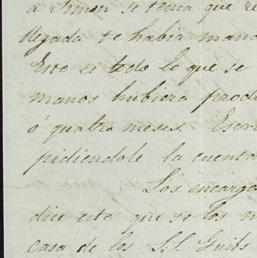 a Simon se tenia que re
llegada te habia mand
Esto es todo lo que se
manos hubiera prod
ó quatro meses. Escri
pidiendole la cuenta
Los encarga
dice este que yo los m
casa de los S.S. Guibs